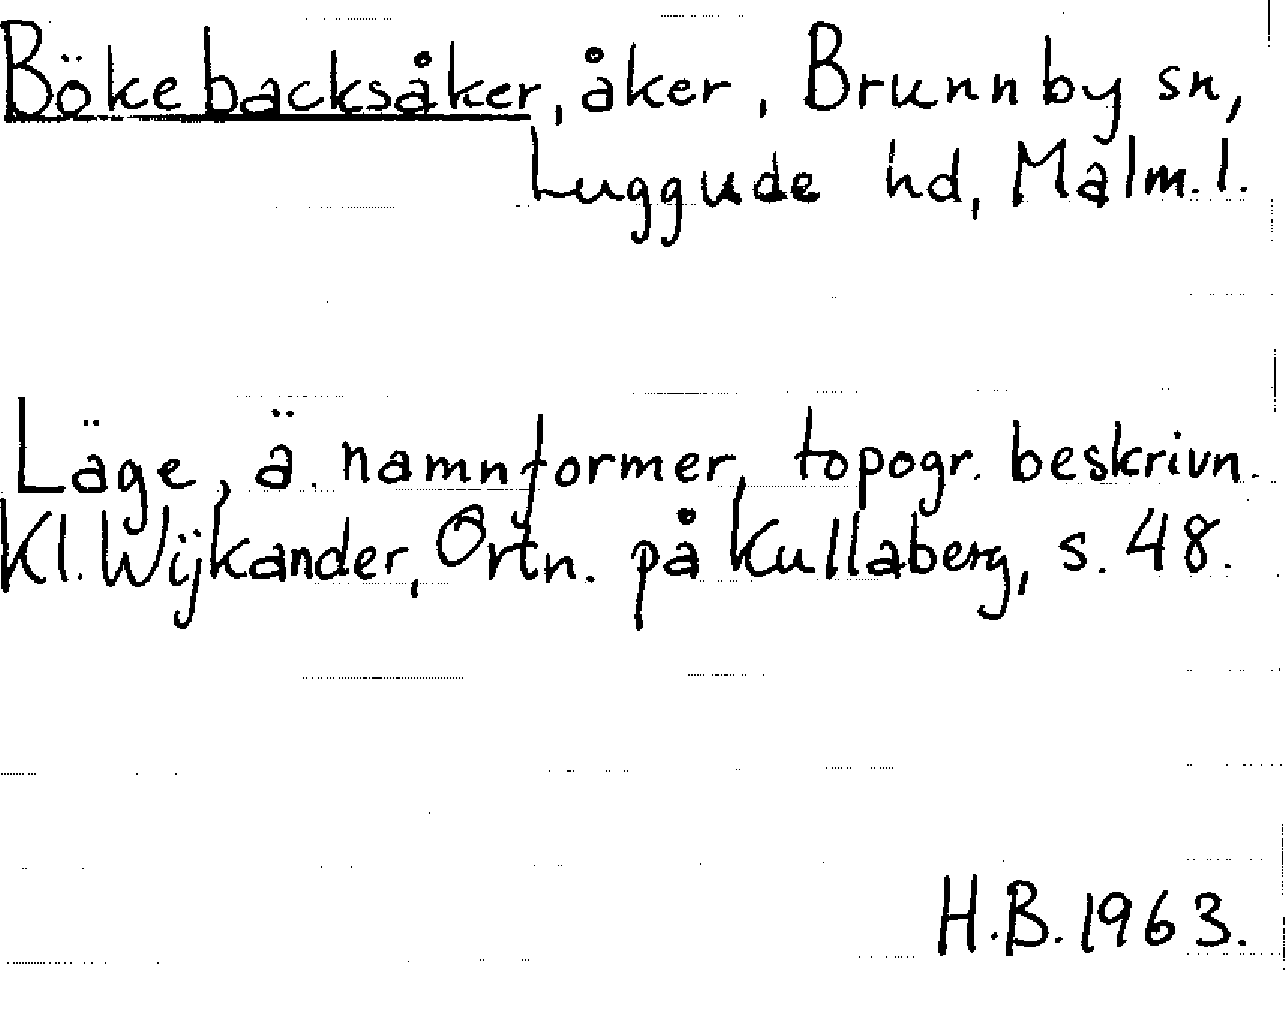 Bökebacksåker, åker, Brunnby sn,
Luggude hd, Malm. l.
Läge, ä. namnformer, topogr. beskrivn.
Kl. Wijkander, Ortn. på Kullaberg, s. 48.
H.B. 1963.